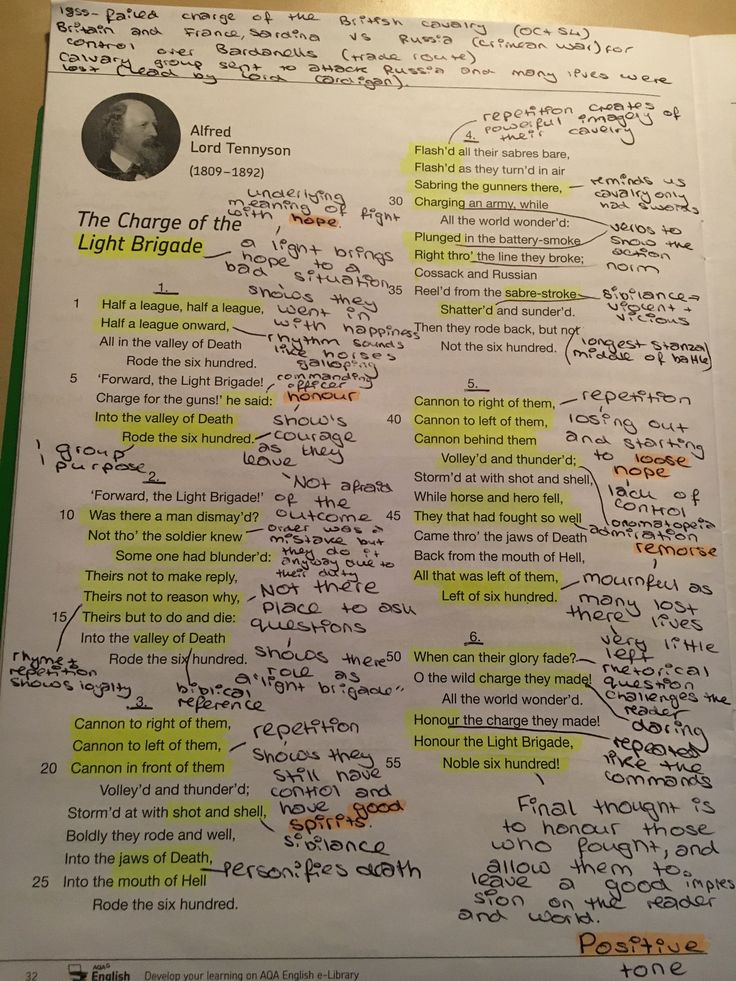 1855 - failed charge of the British cavalry (OCT 54)
Britain and France, Sardina vs Russia (Crimean war) for
control over Bardanells (trade route)
Calvary group sent to attack Russia and many lives were
lost (lead by Lord Cardigan).
Alfred
Lord Tennyson
(1809–1892)
underlying
meaning of fight
with hope.
The Charge of the
Light Brigade
a light brings
hope to a
bad situation
1.
shows they
went in
with happiness
1 Half a league, half a league,
Half a league onward,
rhythm sounds
like horses
galloping
All in the valley of Death
Rode the six hundred.
5 'Forward, the Light Brigade!
commanding
officer
Charge for the guns!' he said:
honour
Into the valley of Death
Rode the six hundred.
show's
courage
as they
leave
1 group
1 purpose
2.
'Forward, the Light Brigade!'
10 Was there a man dismay'd?
Not afraid
of the
outcome
Not tho' the soldier knew
Some one had blunder'd:
order was a
mistake but
they do it
anyway due to
their duty
Theirs not to make reply,
Theirs not to reason why,
15 Theirs but to do and die:
Not there
place to ask
questions
Into the valley of Death
Rode the six hundred.
shows there
role as
a "light brigade"
rhyme +
repetition
shows loyalty
biblical
reference
3.
Cannon to right of them,
Cannon to left of them,
20 Cannon in front of them
repetition
shows they
still have
control and
have good
spirits.
Volley'd and thunder'd;
Storm'd at with shot and shell,
sibilance
Boldly they rode and well,
Into the jaws of Death,
personifies death
25 Into the mouth of Hell
Rode the six hundred.
repetition creates
powerful imagery of
their cavelry
4.
Flash'd all their sabres bare,
Flash'd as they turn'd in air
Sabring the gunners there,
reminds us
cavalry only
had swords
30 Charging an army, while
All the world wonder'd:
Plunged in the battery-smoke
Right thro' the line they broke;
verbs to
show the
action
norm
Cossack and Russian
35 Reel'd from the sabre-stroke
Shatter'd and sunder'd.
sibilance →
violent +
vicious
Then they rode back, but not
Not the six hundred.
(longest stanza/
middle of battle)
5.
Cannon to right of them,
40 Cannon to left of them,
Cannon behind them
Volley'd and thunder'd;
repetition
losing out
and starting
to loose
hope
lack of
control
Storm'd at with shot and shell,
While horse and hero fell,
45 They that had fought so well
onomatopeia
admiration
Came thro' the jaws of Death
Back from the mouth of Hell,
remorse
All that was left of them,
Left of six hundred.
mournful as
many lost
there lives
very little
left
6.
50 When can their glory fade?
rhetorical
question
challenges the
reader
O the wild charge they made!
daring
All the world wonder'd.
Honour the charge they made!
Honour the Light Brigade,
55 Noble six hundred!
repeated
like the
commands
Final thought is
to honour those
who fought, and
allow them to
leave a good impres
sion on the reader
and world.
Positive
tone
32 AQA English Develop your learning on AQA English e-Library